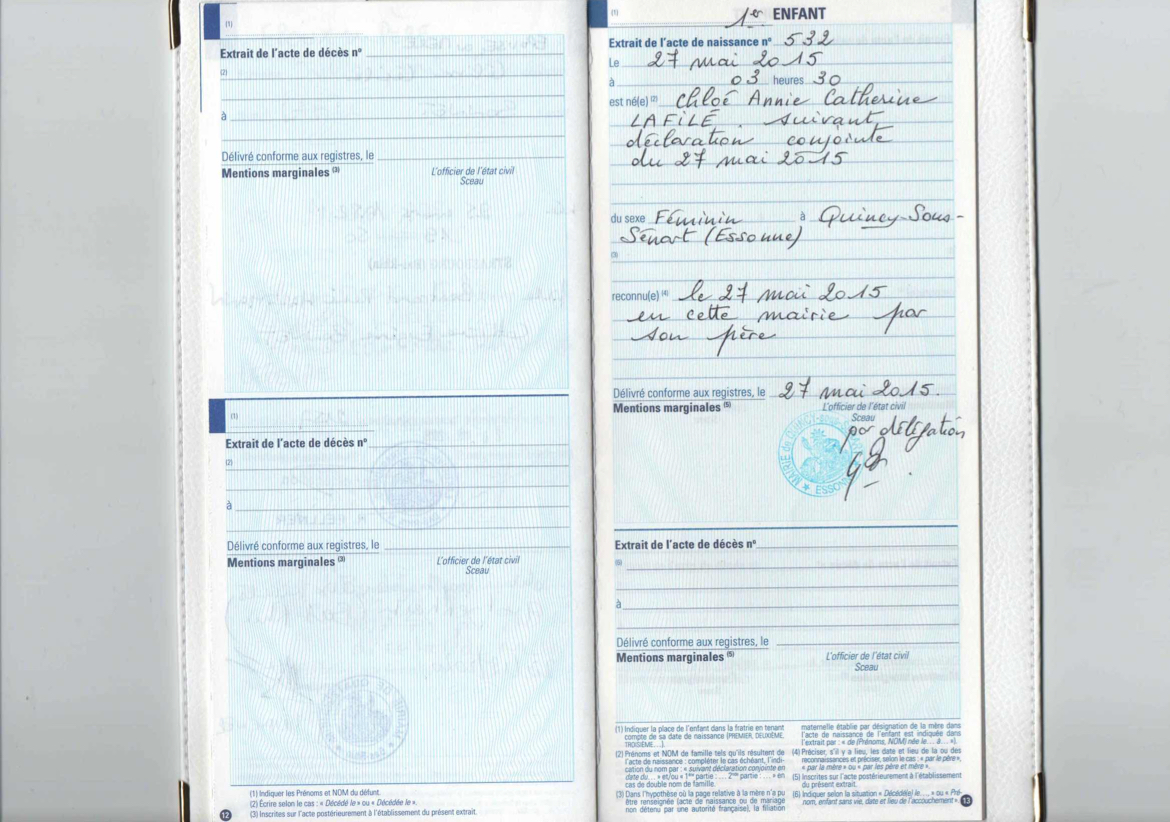 (1)
Extrait de l'acte de décès n°
(2)
à
Délivré conforme aux registres, le
Mentions marginales (3)
L'officier de l'état civil
Sceau
(1)
Extrait de l'acte de décès n°
(2)
à
Délivré conforme aux registres, le
Mentions marginales (3)
L'officier de l'état civil
Sceau
(1) Indiquer les Prénoms et NOM du défunt.
(2) Écrire selon le cas : « Décédé le » ou « Décédée le ».
(3) Inscrites sur l'acte postérieurement à l'établissement du présent extrait.
12
(1) 1er ENFANT
Extrait de l'acte de naissance n° 532
Le 27 mai 2015
à 03 heures 30
est né(e) (2) Chloé Annie Catherine
LAFILÉ. suivant
déclaration conjointe
du 27 mai 2015
du sexe Féminin à Quincy-Sous-
Sénart (Essonne)
(3)
reconnu(e) (4) le 27 mai 2015
en cette mairie par
son père
Délivré conforme aux registres, le 27 mai 2015.
Mentions marginales (5)
L'officier de l'état civil
Sceau
par délégation
MAIRIE de QUINCY-sous-SÉNART
ESSONNE
Extrait de l'acte de décès n°
(6)
à
Délivré conforme aux registres, le
Mentions marginales (5)
L'officier de l'état civil
Sceau
(1) Indiquer la place de l'enfant dans la fratrie en tenant
compte de sa date de naissance (PREMIER, DEUXIÈME,
TROISIÈME....).
(2) Prénoms et NOM de famille tels qu'ils résultent de
l'acte de naissance : compléter le cas échéant, l'indi-
cation du nom par : « suivant déclaration conjointe en
date du.... » et/ou « 1ère partie : .... 2nde partie : .... » en
cas de double nom de famille.
(3) Dans l'hypothèse où la page relative à la mère n'a pu
être renseignée (acte de naissance ou de mariage
non détenu par une autorité française), la filiation
maternelle établie par désignation de la mère dans
l'acte de naissance de l'enfant est indiquée dans
l'extrait par : « de (Prénoms, NOM) née le.... à.... »).
(4) Préciser, s'il y a lieu, les date et lieu de la ou des
reconnaissances et préciser, selon le cas : « par le père »,
« par la mère » ou « par les père et mère ».
(5) Inscrites sur l'acte postérieurement à l'établissement
du présent extrait.
(6) Indiquer selon la situation « Décédé(e) le.... » ou « Pré-
nom, enfant sans vie, date et lieu de l'accouchement »
13